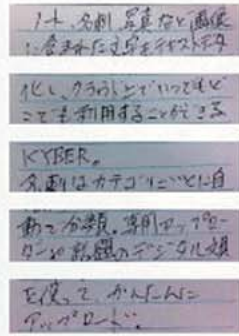 ノート、名刺、写真など画像
に含まれた文字をテキストデータ
化し、クラウド上でいつでもど
こでも利用することができる
KYBER。
名刺はカテゴリーごとに自
動で分類。専用アップロー
ダーや話題のデジタル文具
を使って、かんたんに
アップロード。